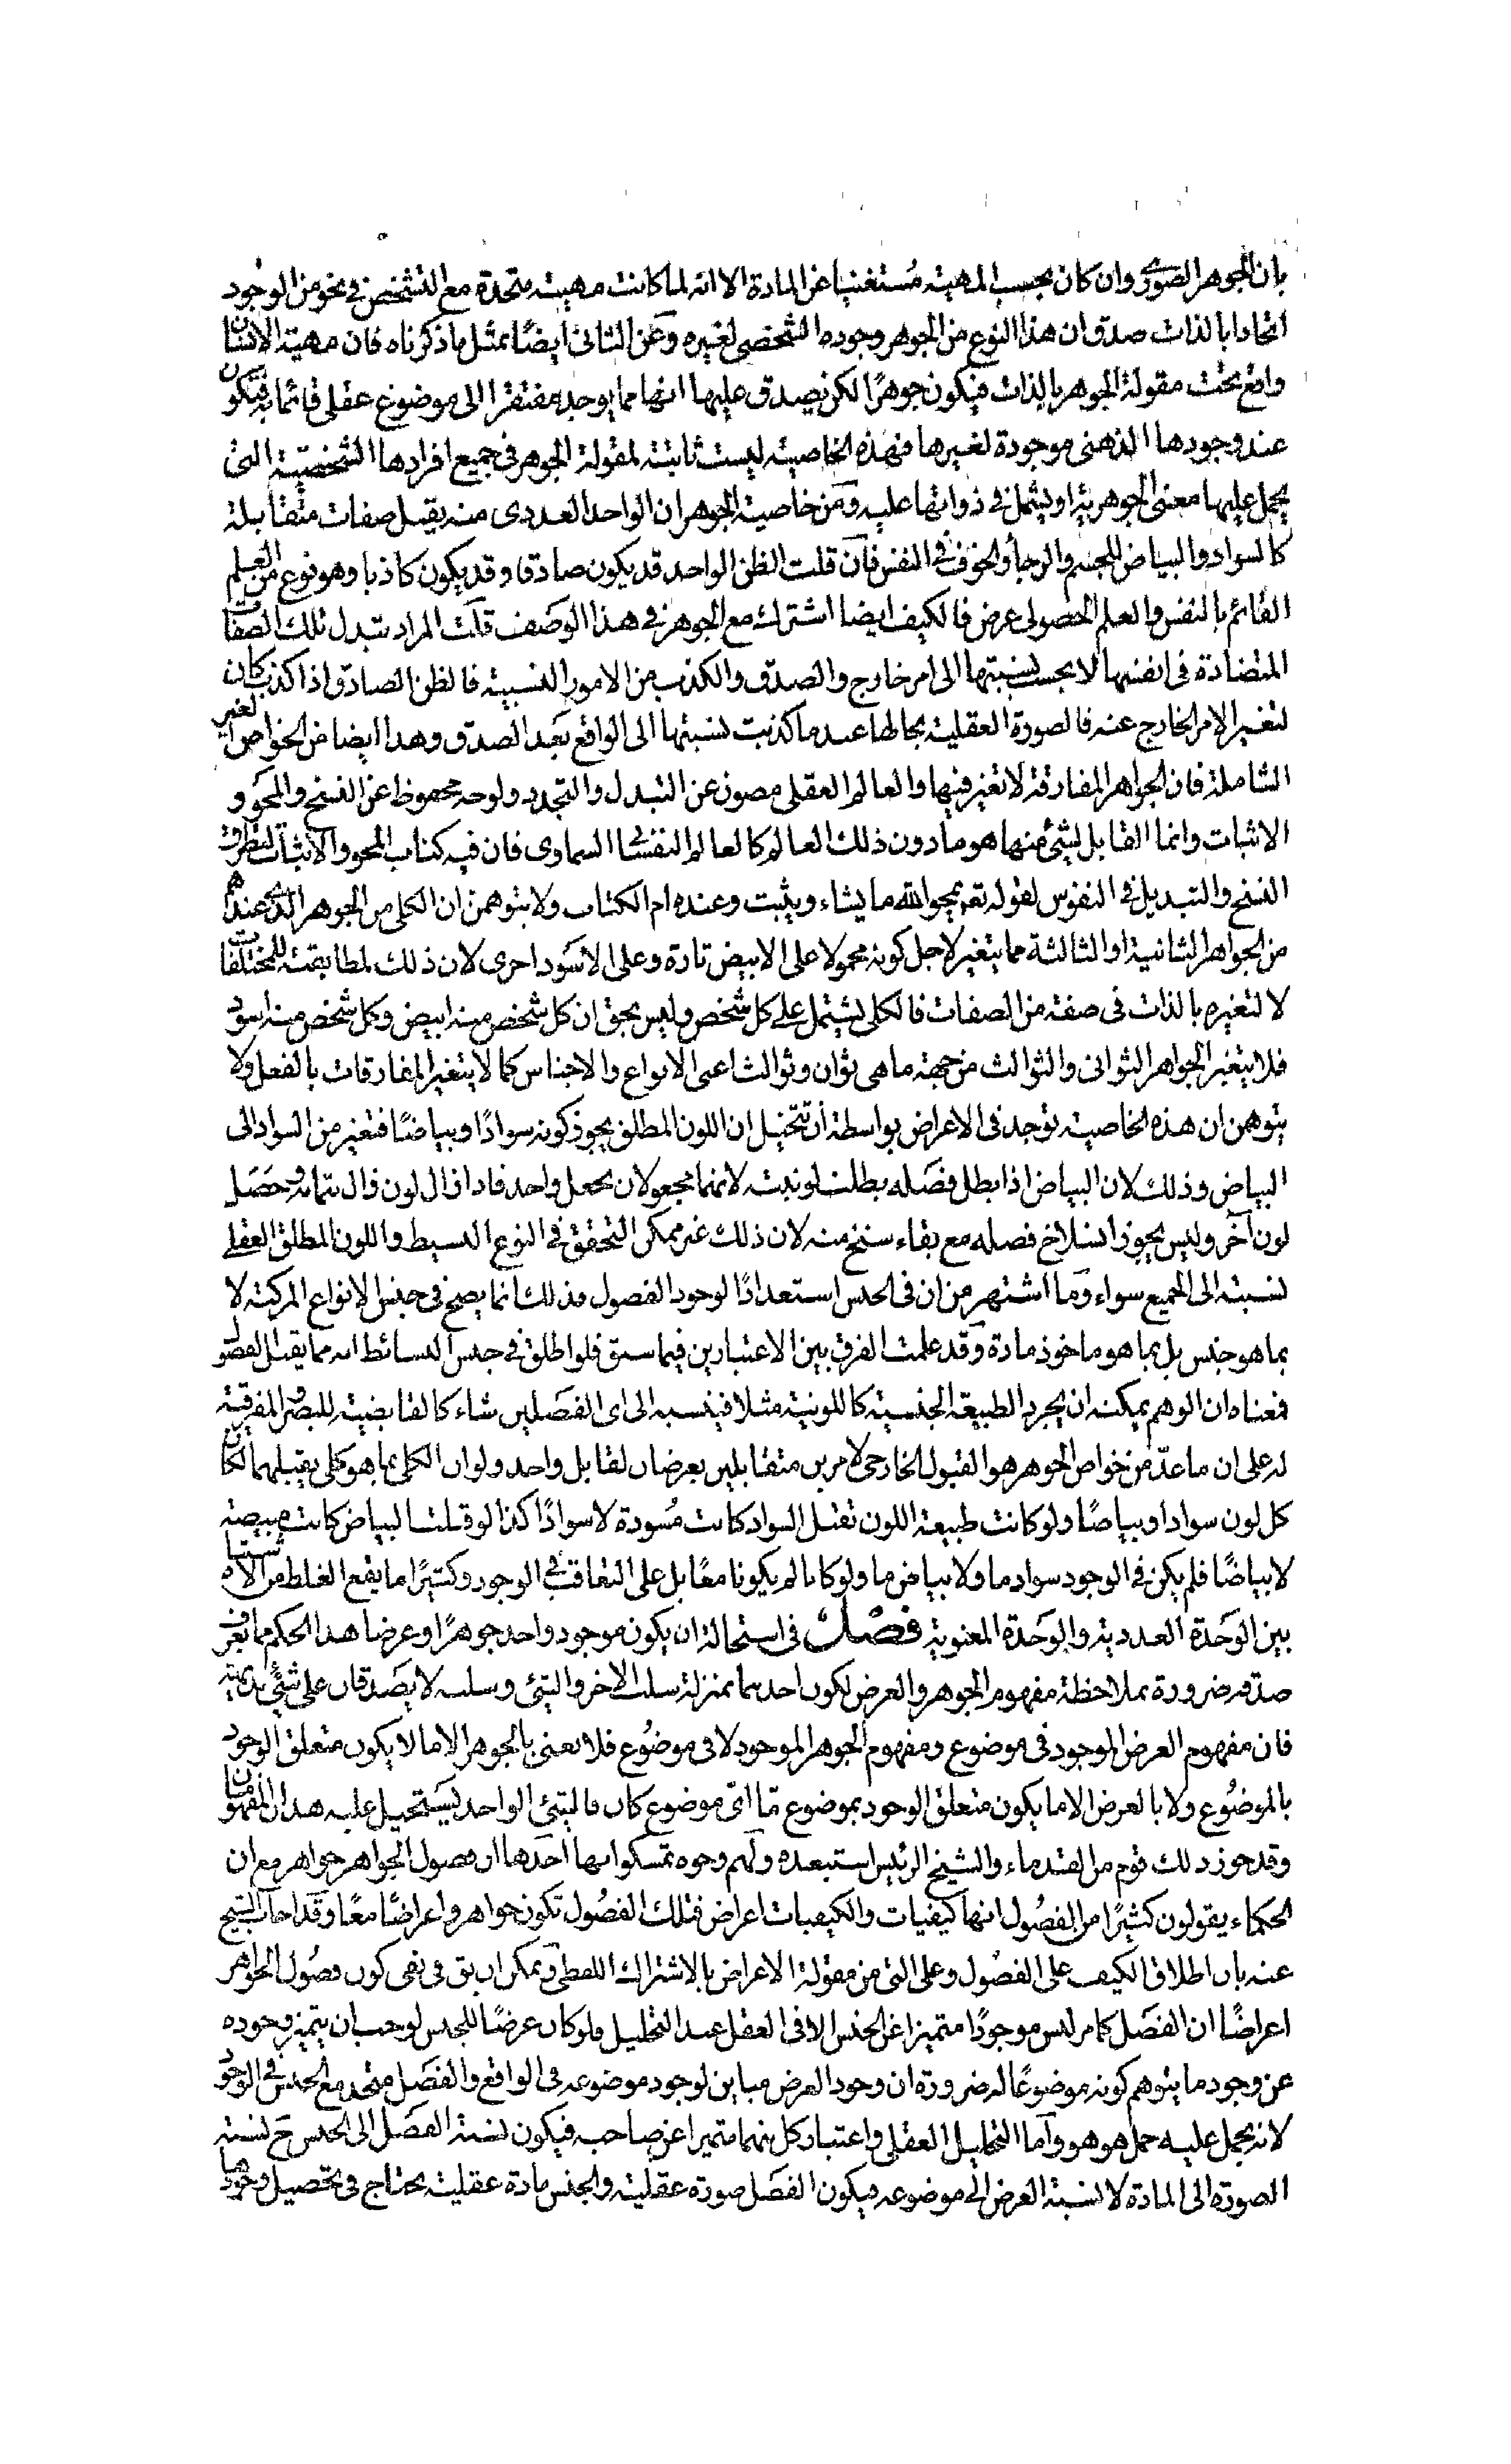 بان الجوهر الصوري وان كان بحسب المهية مستغنيا عن المادة الا انه لما كانت مهيته متحدة مع التشخص في نحو من الوجود
اتحادا بالذات صدق ان هذا النوع من الجوهر وجوده الشخصي لغيره وعن الثاني ايضًا بمثل ما ذكرناه فان مهية الانسان
واقع تحت مقولة الجوهر بالذات فيكون جوهرًا لكن يصدق عليها انها مما يوجد مفتقرا الى موضوع عقلي قائما به فيكون
عند وجودها الذهني موجودة لغيرها فهذه الخاصية ليست ثابتة لمقولة الجوهر في جميع افرادها الشخصية التي
يحمل عليها معنى الجوهرية او يشتمل في ذواتها عليه ومن خاصية الجوهر ان الواحد العددى منه يقبل صفات متقابلة
كالسواد والبياض للجسم والرجأ والخوف في النفس فان قلت الظن الواحد قد يكون صادقا وقد يكون كاذبا وهو نوع من العلم
القائم بالنفس والعلم الحصولى عرض فالكيف ايضا اشترك مع الجوهر في هذا الوصف قلت المراد تبدل تلك الصفات
المتضادة في انفسها لا بحسب نسبتها الى امر خارج والصدق والكذب من الامور النسبية فالظن الصادق اذا كذب كان
لتغير الامر الخارج عنه فالصورة العقلية بحالها عند ما كذبت نسبتها الى الواقع بعد الصدق وهذا ايضا من الخواص الغير
الشاملة فان الجواهر المفارقة لا تغير فيها والعالم العقلى مصون عن التبدل والتجدد ولوحه محفوظ عن النسخ والمحو و
الاثبات وانما القابل لشئ منها هو ما دون ذلك العالم كالعالم النفساني السماوى فان فيه كتاب المحو والاثبات لتطرق
النسخ والتبديل في النفوس لقوله تعم يمحو الله ما يشاء ويثبت وعنده ام الكتاب ولا يتوهمن ان الكلى من الجوهر الذي عندهم
من الجواهر الثانية او الثالثة مما يتغير لاجل كونه محمولا على الابيض تارة وعلى الاسود اخرى لان ذلك لمطابقته للمختلفات
لا لتغيره بالذات في صفة من الصفات فالكلى يشتمل على كل شخص وليس يحق ان كل شخص منه ابيض وكل شخص منه اسود
فلا يتغير الجواهر الثوانى والثوالث من جهة ما هى ثوان وثوالث اعنى الانواع والاجناس كما لا يتغير المفارقات بالفعل ولا
يتوهمن ان هذه الخاصية توجد في الاعراض بواسطة أن تتخيل ان اللون المطلق يجوز كونه سوادًا وبياضًا فتغير من السواد الى
البياض وذلك لان البياض اذا بطل فصله بطلت لونيته لانهما مجعولان بجعل واحد فاذا زال لون زال بتمامه وحصل
لون آخر وليس يجوز انسلاخ فصله مع بقاء سنخ منه لان ذلك غير ممكن التحقق في النوع البسيط واللون المطلق العقلي
نسبته الى الجميع سواء وما اشتهر من ان في الجنس استعدادًا لوجود الفصول فذلك انما يصح في جنس الانواع المركبة لا
بما هو جنس بل بما هو ماخوذ مادة وقد علمت الفرق بين الاعتبارين فيما سبق فلو اطلق في جنس البسائط انه مما يقبل الفصول
فمعناه ان الوهم يمكنه ان يجرد الطبيعة الجنسية كاللونية مثلا فينسبه الى اى الفصلين شاء كالقابضية للبصر والمفرقية
له على ان ما عدّ من خواص الجوهر هو القبول الخارجى لامرين متقابلين يعرضان لقابل واحد ولو ان الكلى بما هو كلى يقبلهما لكان
كل لون سوادا وبياضًا ولو كانت طبيعة اللون تقبل السواد كانت مسودة لا سوادًا كذا لو قبلت البياض كانت مبيضة
لا بياضًا فلم يكن في الوجود سواد ما ولا بياض ما ولو كانا لم يكونا معًا بل على التعاقب في الوجود وكثيرًا ما يقع الغلط من الاشتباه
بين الوحدة العددية والوحدة المعنوية فصل في استحالة ان يكون موجود واحد جوهرًا وعرضا هذا الحكم مما يعرف
صدقه ضرورة بملاحظة مفهوم الجوهر والعرض لكون احدهما بمنزلة سلب الاخر والشئ وسلبه لا يصدقان على شئ بديهية
فان مفهوم العرض الموجود في موضوع ومفهوم الجوهر الموجود لا في موضوع فلا نعنى بالجوهر الا ما لا يكون متعلق الوجود
بالموضوع ولا بالعرض الا ما يكون متعلق الوجود بموضوع مّا اىّ موضوع كان فالشئ الواحد يستحيل عليه هذان المفهومان
وقد جوز ذلك قوم من القدماء والشيخ الرئيس استبعده ولهم وجوه تمسكوا بها احدها ان فصول الجواهر جواهر مع ان
الحكماء يقولون كثيرًا من الفصول انها كيفيات والكيفيات اعراض فتلك الفصول تكون جواهر واعراضًا معًا وقد اجاب الشيخ
عنه بان اطلاق الكيف على الفصول وعلى التى من مقولة الاعراض بالاشتراك اللفظى ويمكن ان يق في نفى كون فصول الجواهر
اعراضًا ان الفصل كما مر ليس موجودًا متميزا عن الجنس الا في العقل عند التحليل فلو كان عرضًا للجنس لوجب ان يتميز وجوده
عن وجود ما يتوهم كونه موضوعًا له ضرورة ان وجود العرض مباين لوجود موضوعه في الواقع والفصل متحد مع الجنس في الوجود
لانه يحمل عليه حمل هو هو وأما التحليل العقلى واعتبار كل منهما متميزا عن صاحبه فيكون نسبة الفصل الى الجنس ح نسبة
الصورة الى المادة لا نسبة العرض الى موضوعه فيكون الفصل صورة عقلية والجنس مادة عقلية يحتاج في تحصيل وجودها